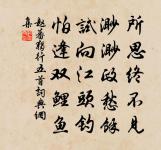 所思终不见
渺渺政愁余
试向江头钓
怕逢双鲤鱼
赵蕃犹行五首词典网
集